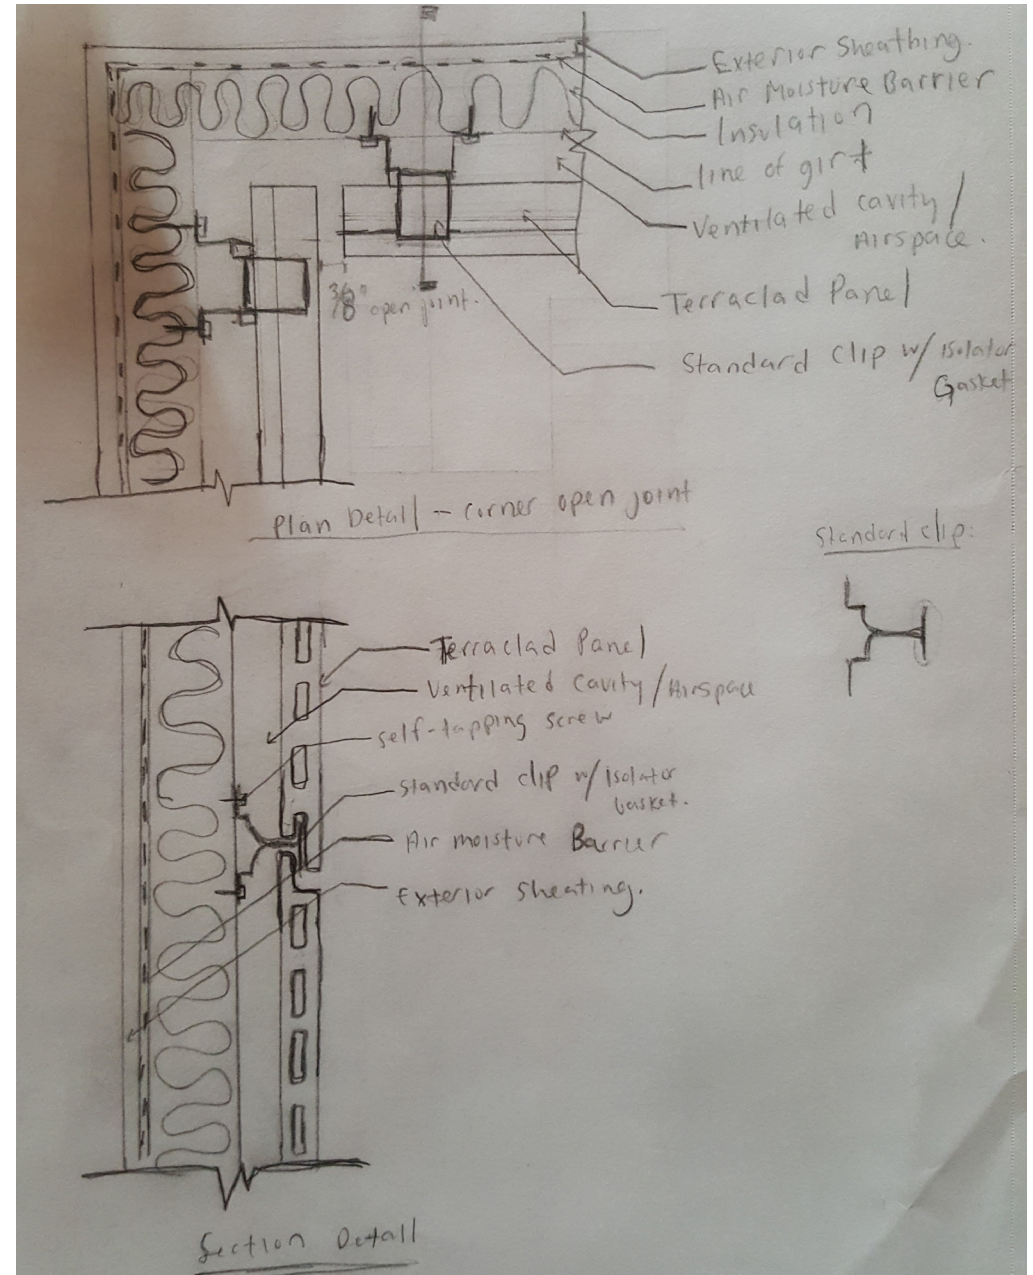 Exterior Sheathing.
Air Moisture Barrier
Insulation
line of girt
Ventilated cavity /
Airspace.
Terraclad Panel
Standard Clip w/ isolator
Gasket
3/8" open joint.
Plan Detail - corner open joint
Standard clip:
Terraclad Panel
Ventilated Cavity / Airspace
self-tapping screw
Standard clip w/ isolator
Gasket.
Air moisture Barrier
Exterior Sheating.
Section Detail